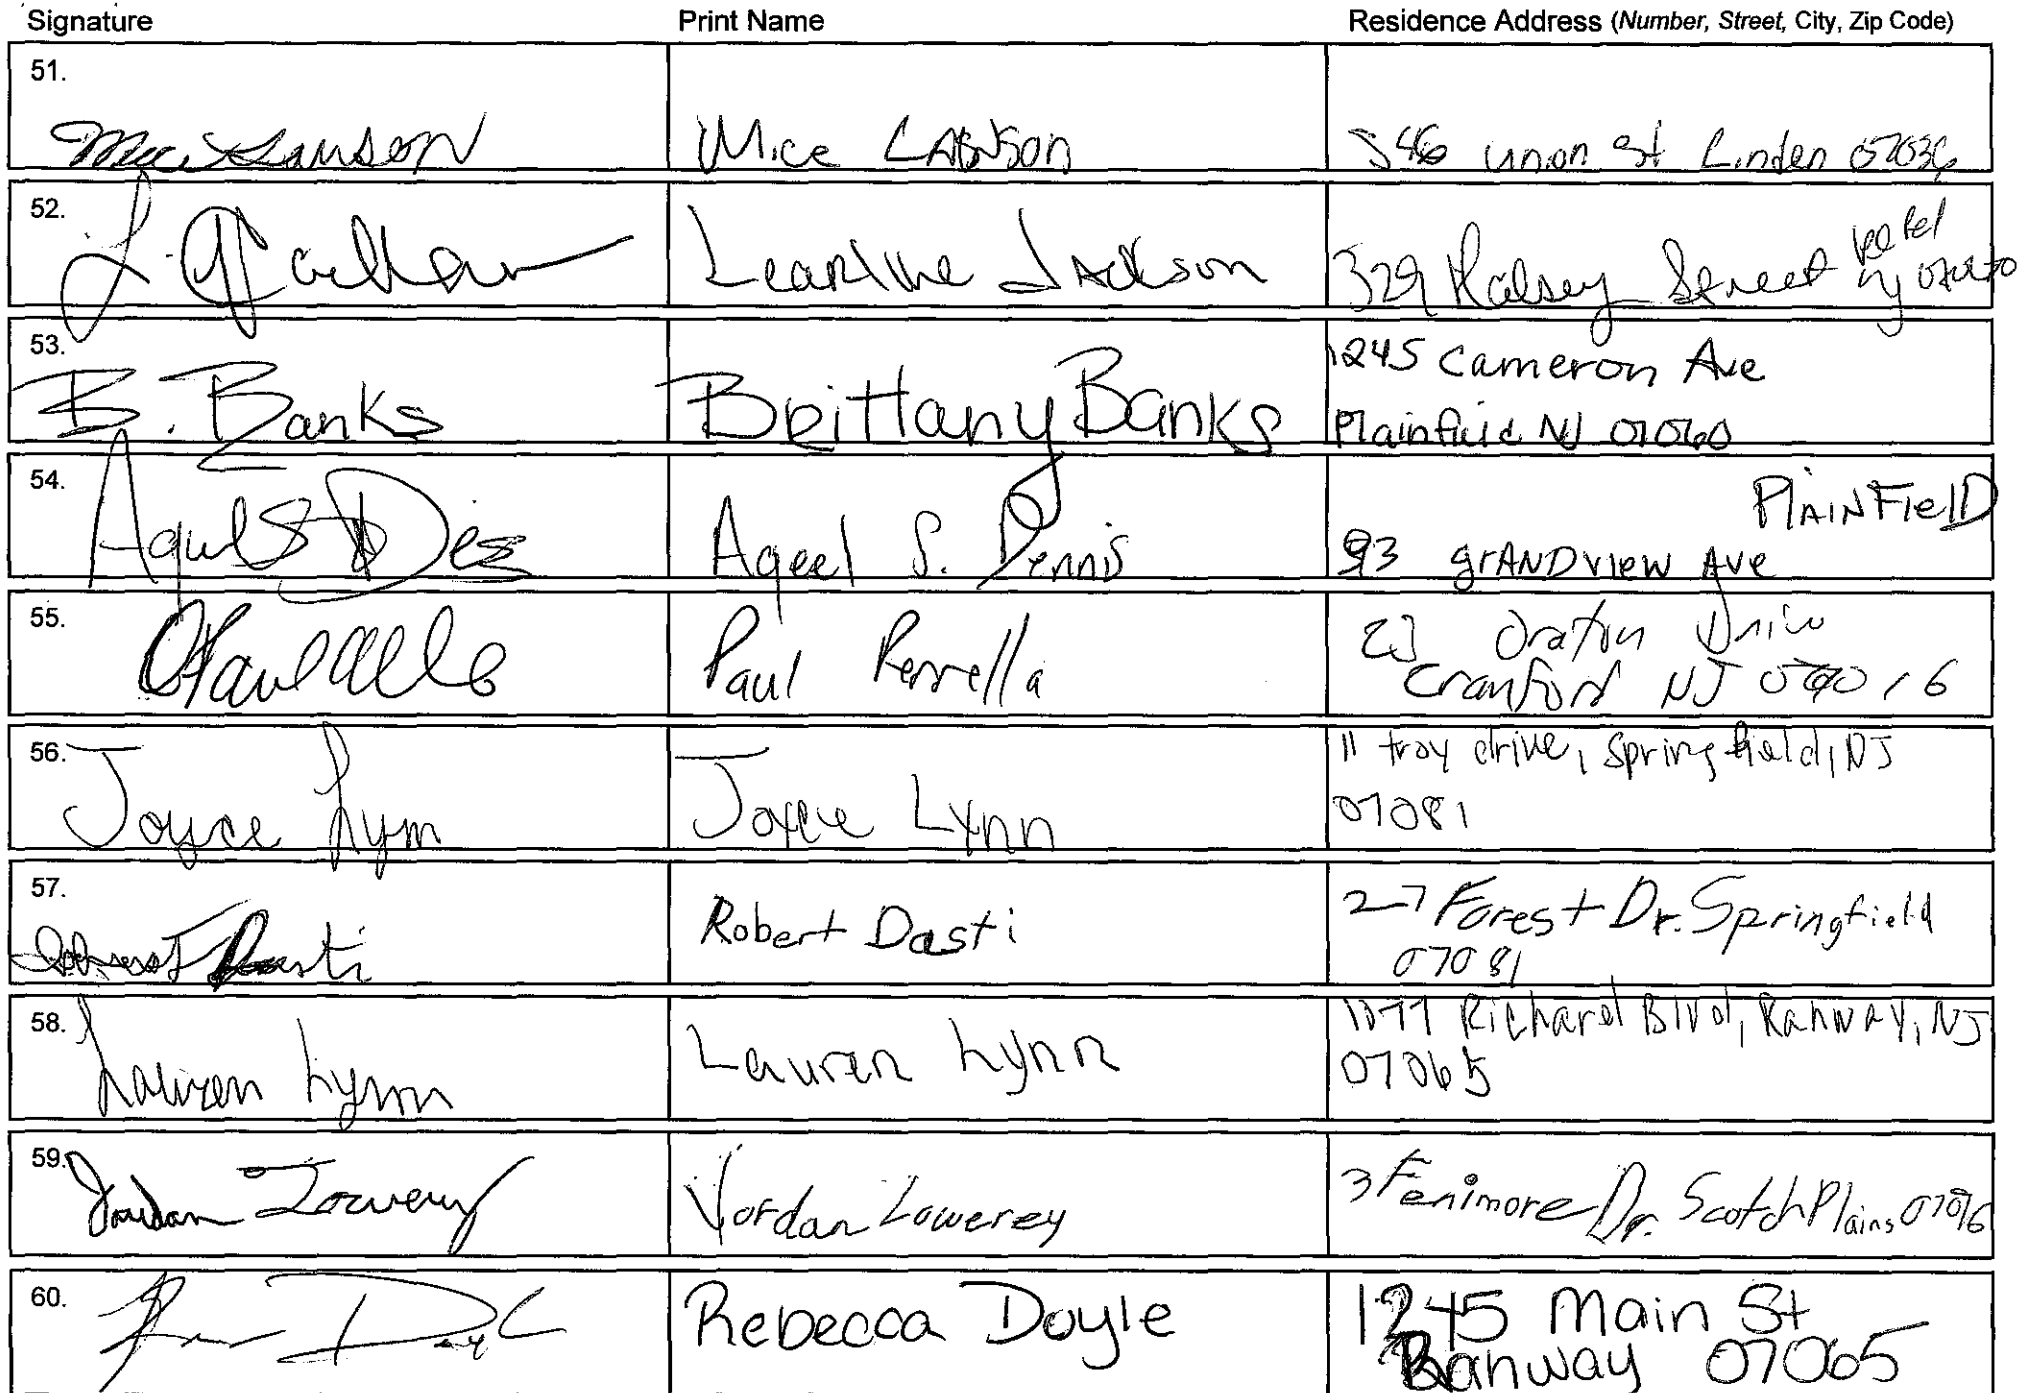 Signature Print Name Residence Address (Number, Street, City, Zip Code)
51.
Mice Lawson 546 union st Linden 07036
52.
Jackson 329 Halsey Street
NJ
53.
B. Banks Brittany Banks 1245 Cameron Ave
Plainfield NJ 07060
54.
Aqeel S. Dennis PlAINFIelD
93 grANDview Ave
55.
Paul 23 Oraton Drive
Cranford NJ 07016
56.
Joyce Lynn Joyce Lynn 11 troy drive, Springfield, NJ
07081
57.
Robert Dasti 27 Forest Dr. Springfield
07081
58.
Lauren Lynn Lauren Lynn Richard Blvd, Rahway, NJ
07065
59.
Jordan Lowerey Jordan Lowerey 3 Fenimore Dr. Scotch Plains 07076
60.
Rebecca Doyle 1245 Main St
Rahway 07065